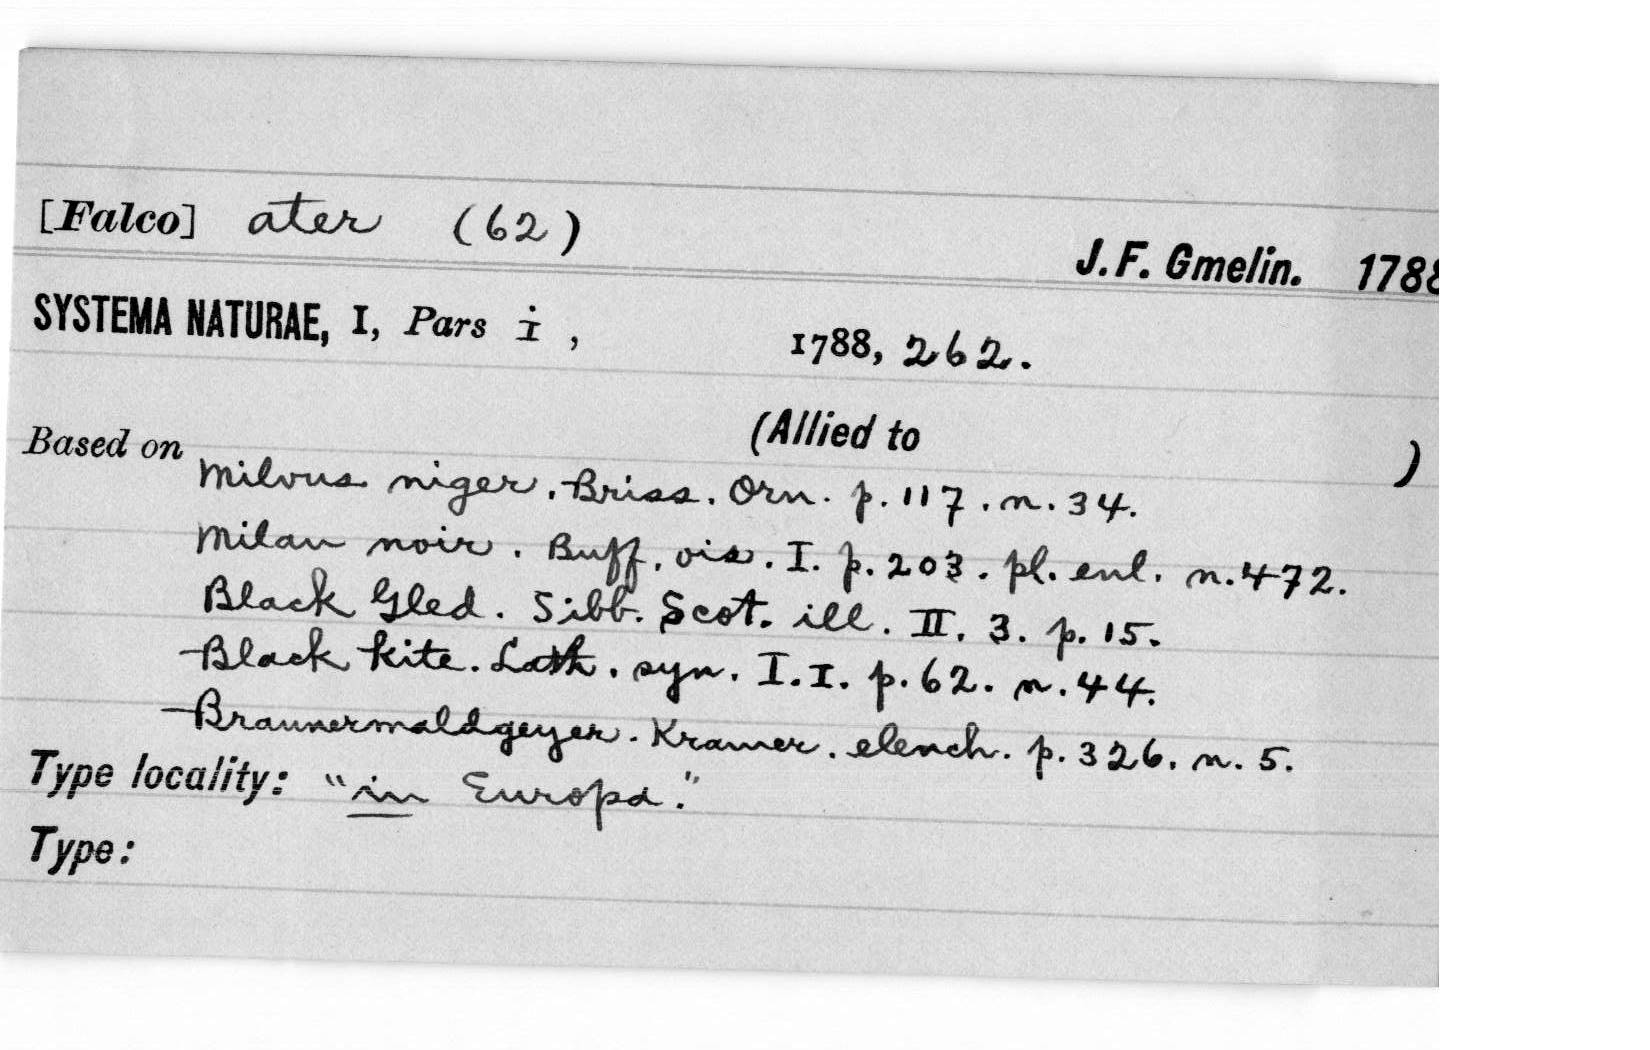 [Falco] ater (62)
J. F. Gmelin. 1788
SYSTEMA NATURAE, I, Pars i, 1788, 262.
(Allied to )
Based on
Milvus niger. Briss. Orn. p. 117. n. 34.
Milan noir. Buff. ois. I. p. 203. pl. enl. n. 472.
Black Gled. Sibb. Scot. ill. II. 3. p. 15.
Black kite. Lath. syn. I. I. p. 62. n. 44.
Braunermaldgeyer. Kramer. elench. p. 326. n. 5.
Type locality: "in Europa."
Type: